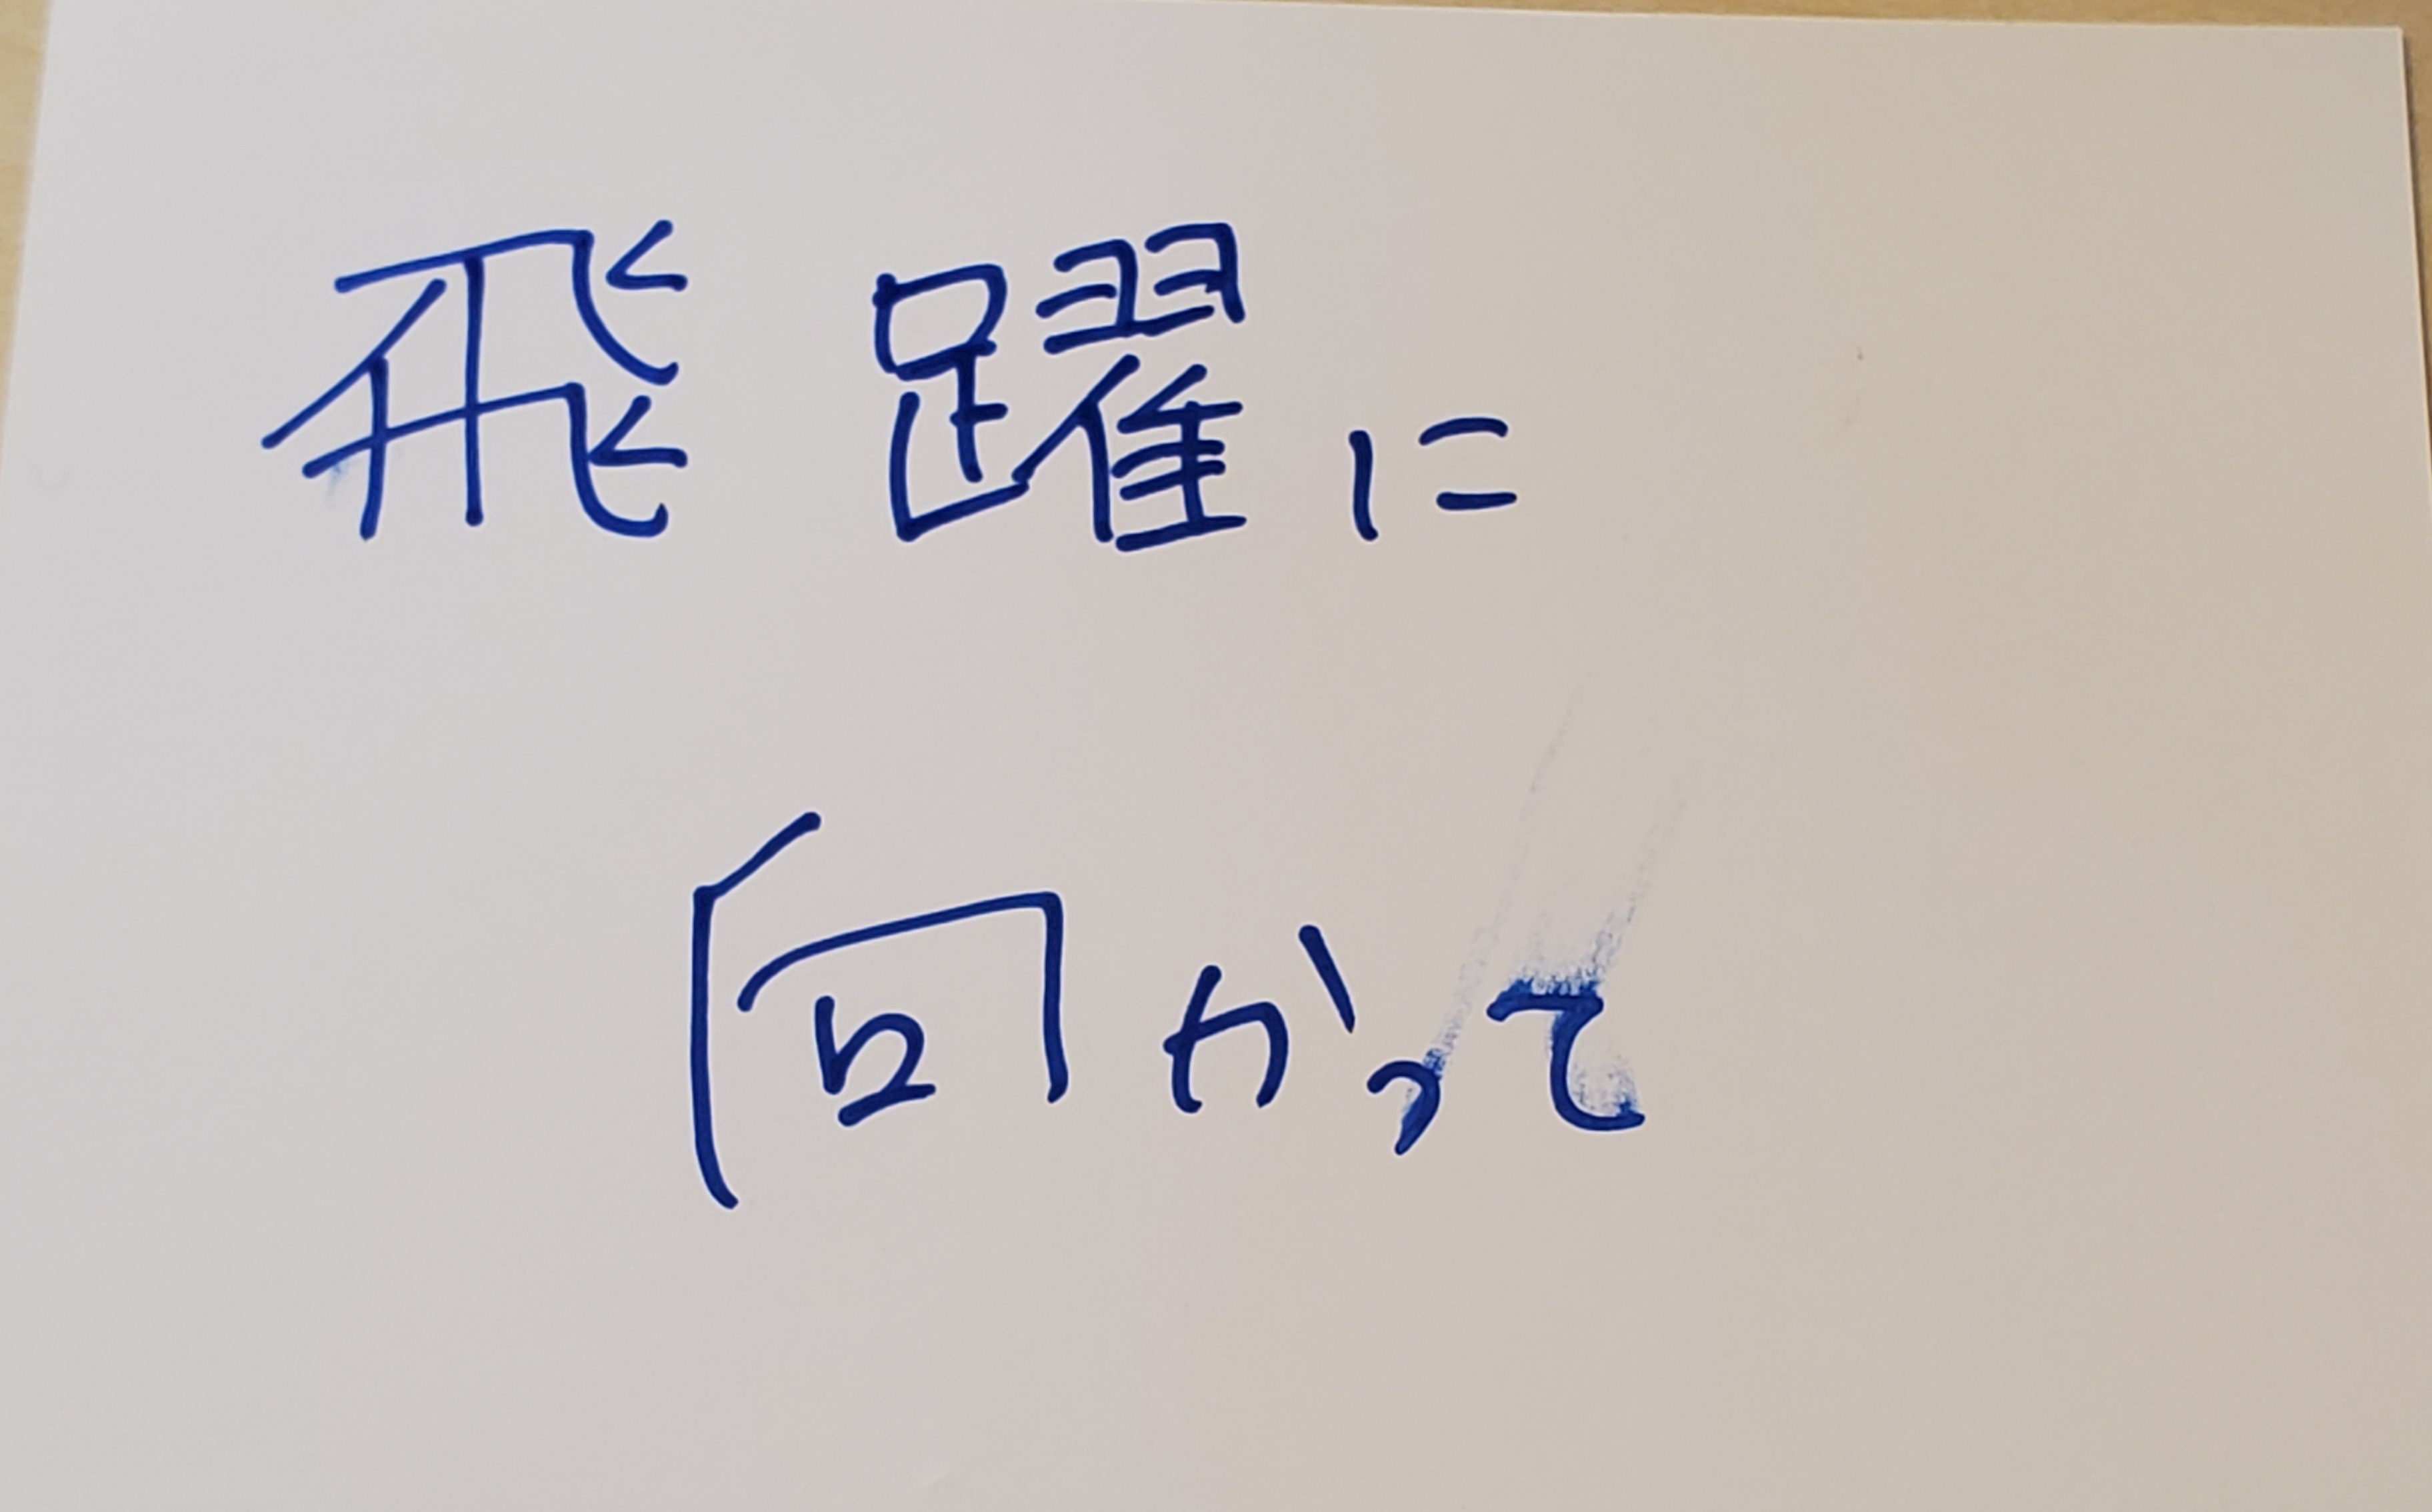 飛躍に
向かって